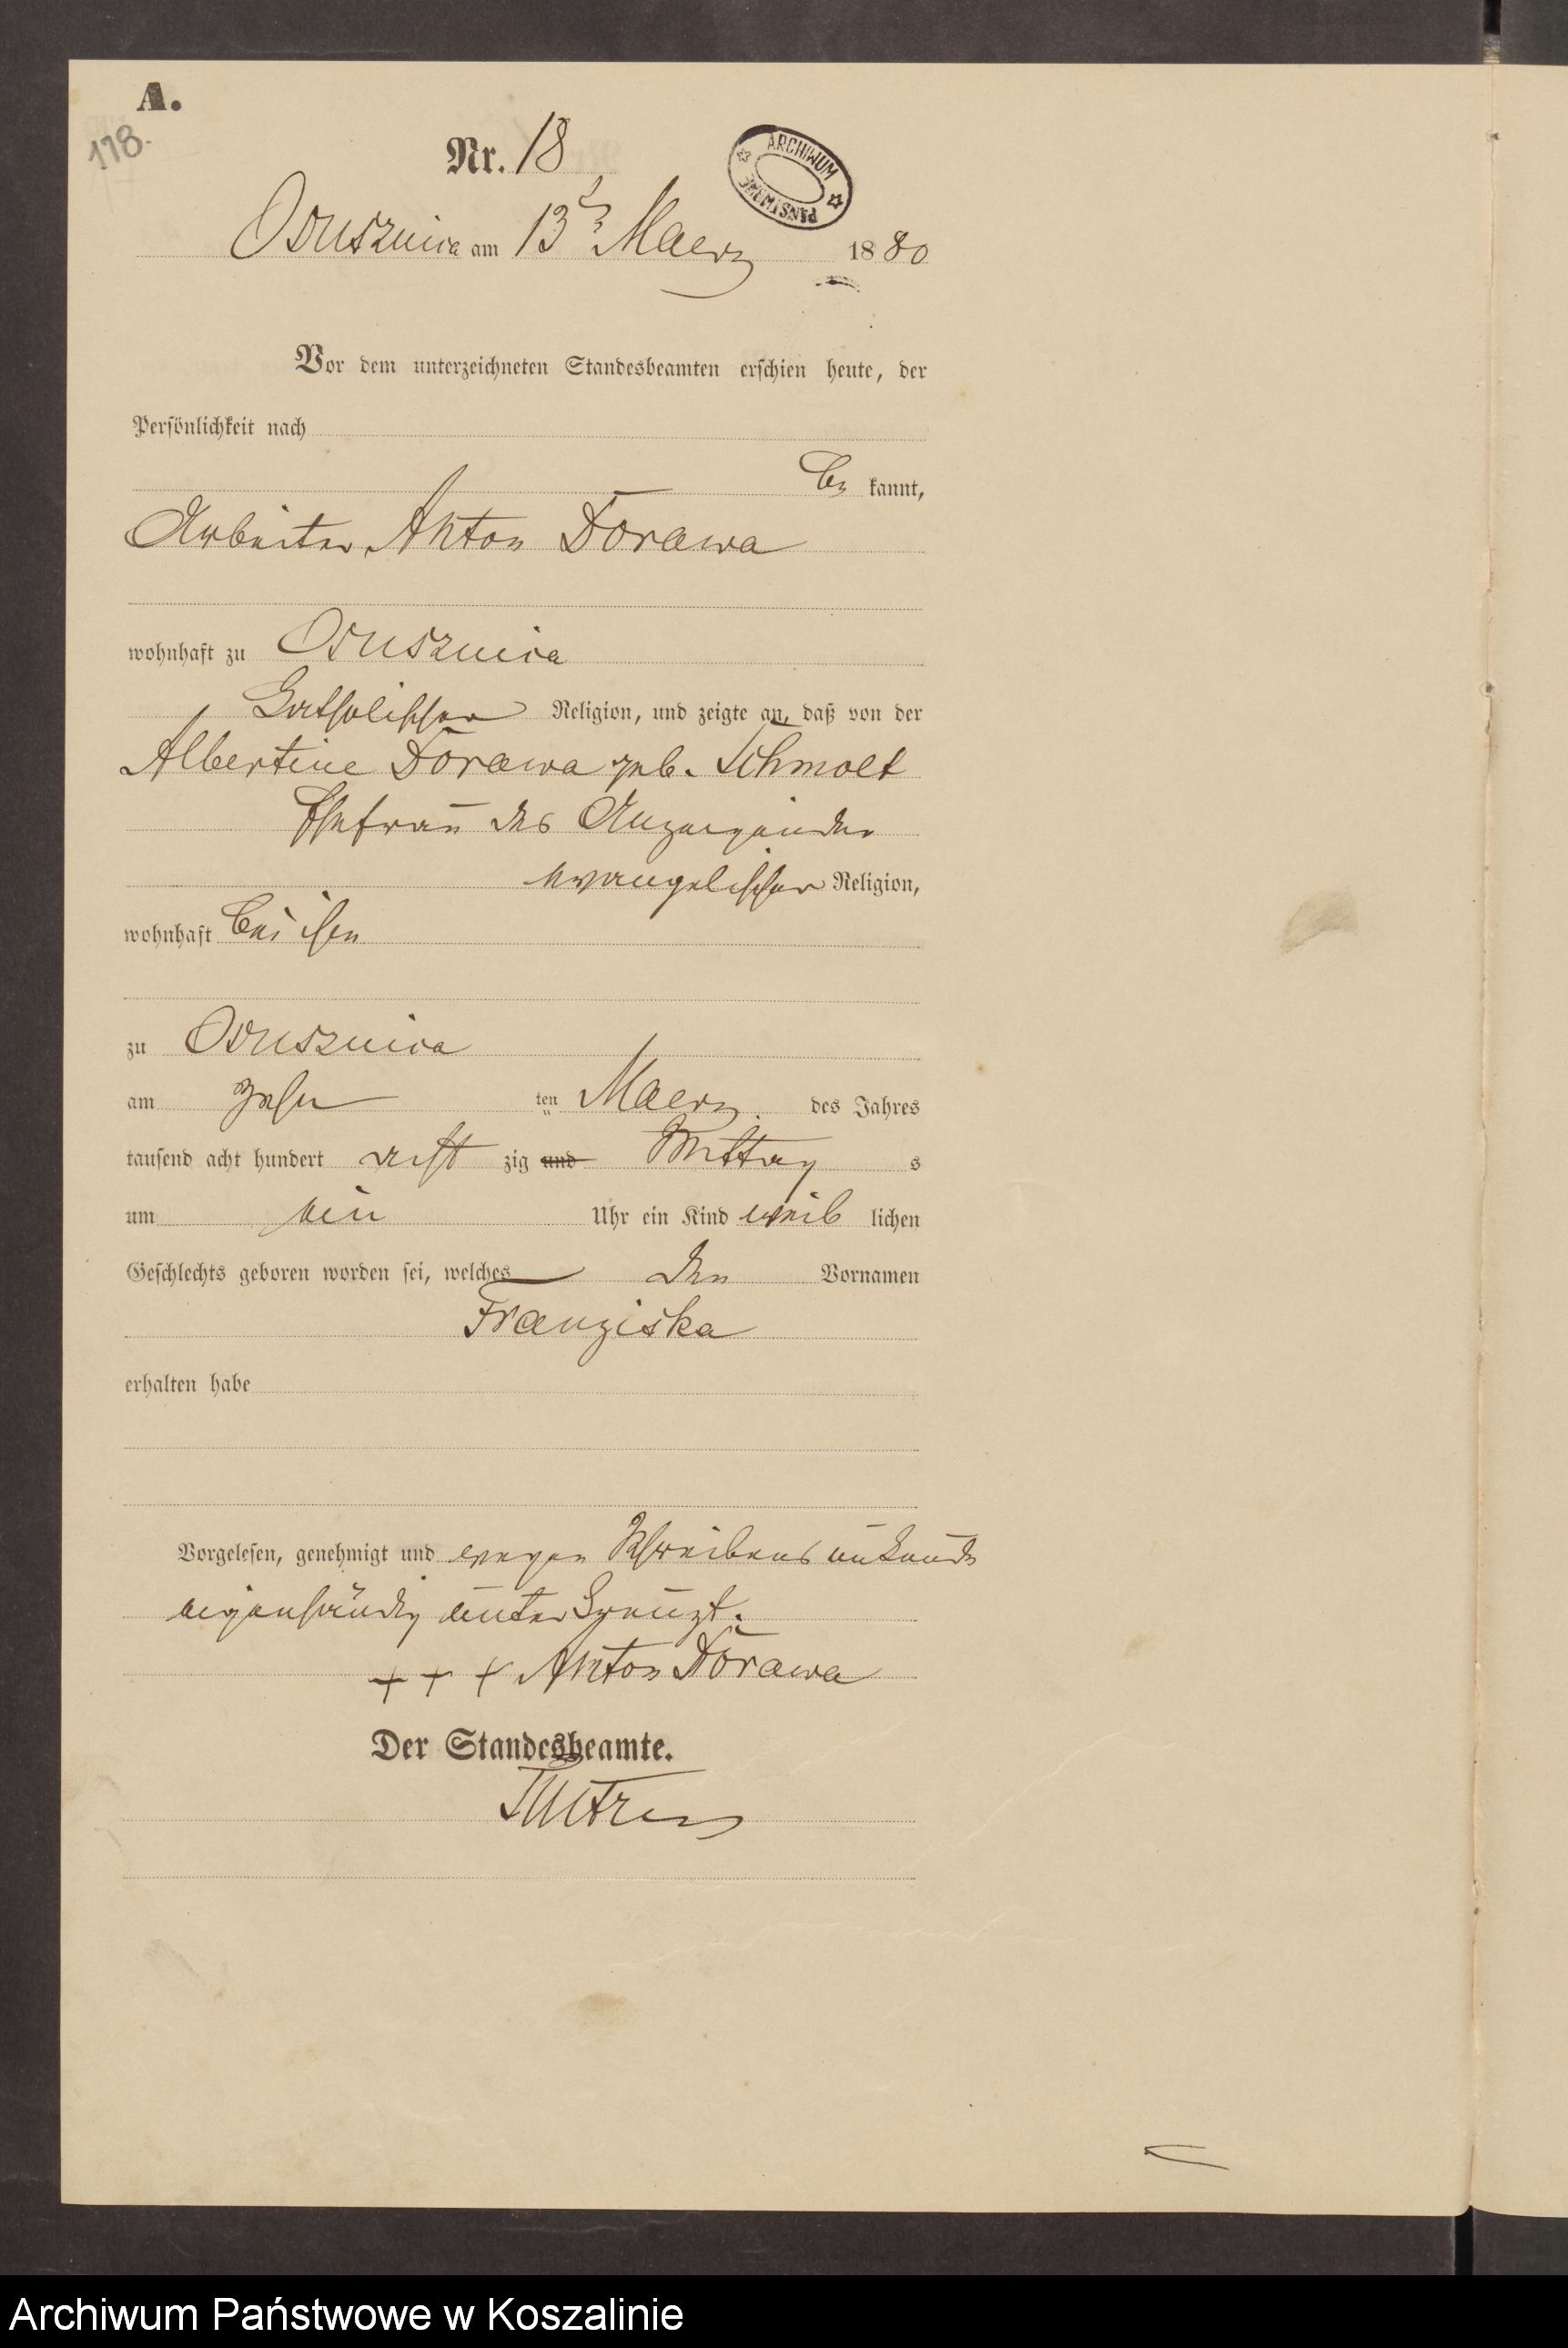 A.
178.
Nr. 18
ARCHIWUM PAŃSTWOWE
Ossusznica am 13ten Maerz 1880
Vor dem unterzeichneten Standesbeamten erschien heute, der
Persönlichkeit nach
be kannt,
Arbeiter Anton Dorawa
wohnhaft zu Ossusznica
katholischer Religion, und zeigte an, daß von der
Albertine Dorawa geb. Schmolt
Ehefrau des Anzeigenden
evangelischer Religion,
wohnhaft bei ihm
zu Ossusznica
am zehn ten Maerz des Jahres
tausend acht hundert acht zig und Mittag s
um ein Uhr ein Kind weib lichen
Geschlechts geboren worden sei, welches den Vornamen
Franziska
erhalten habe
Vorgelesen, genehmigt und wegen Schreibensunkunde
eigenhändig unterkreuzt.
+ + + Anton Dorawa
Der Standesbeamte.
Archiwum Państwowe w Koszalinie